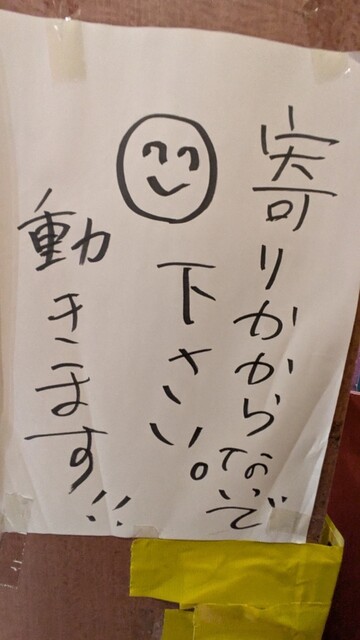 寄りかからないで
下さい。
動きます!!